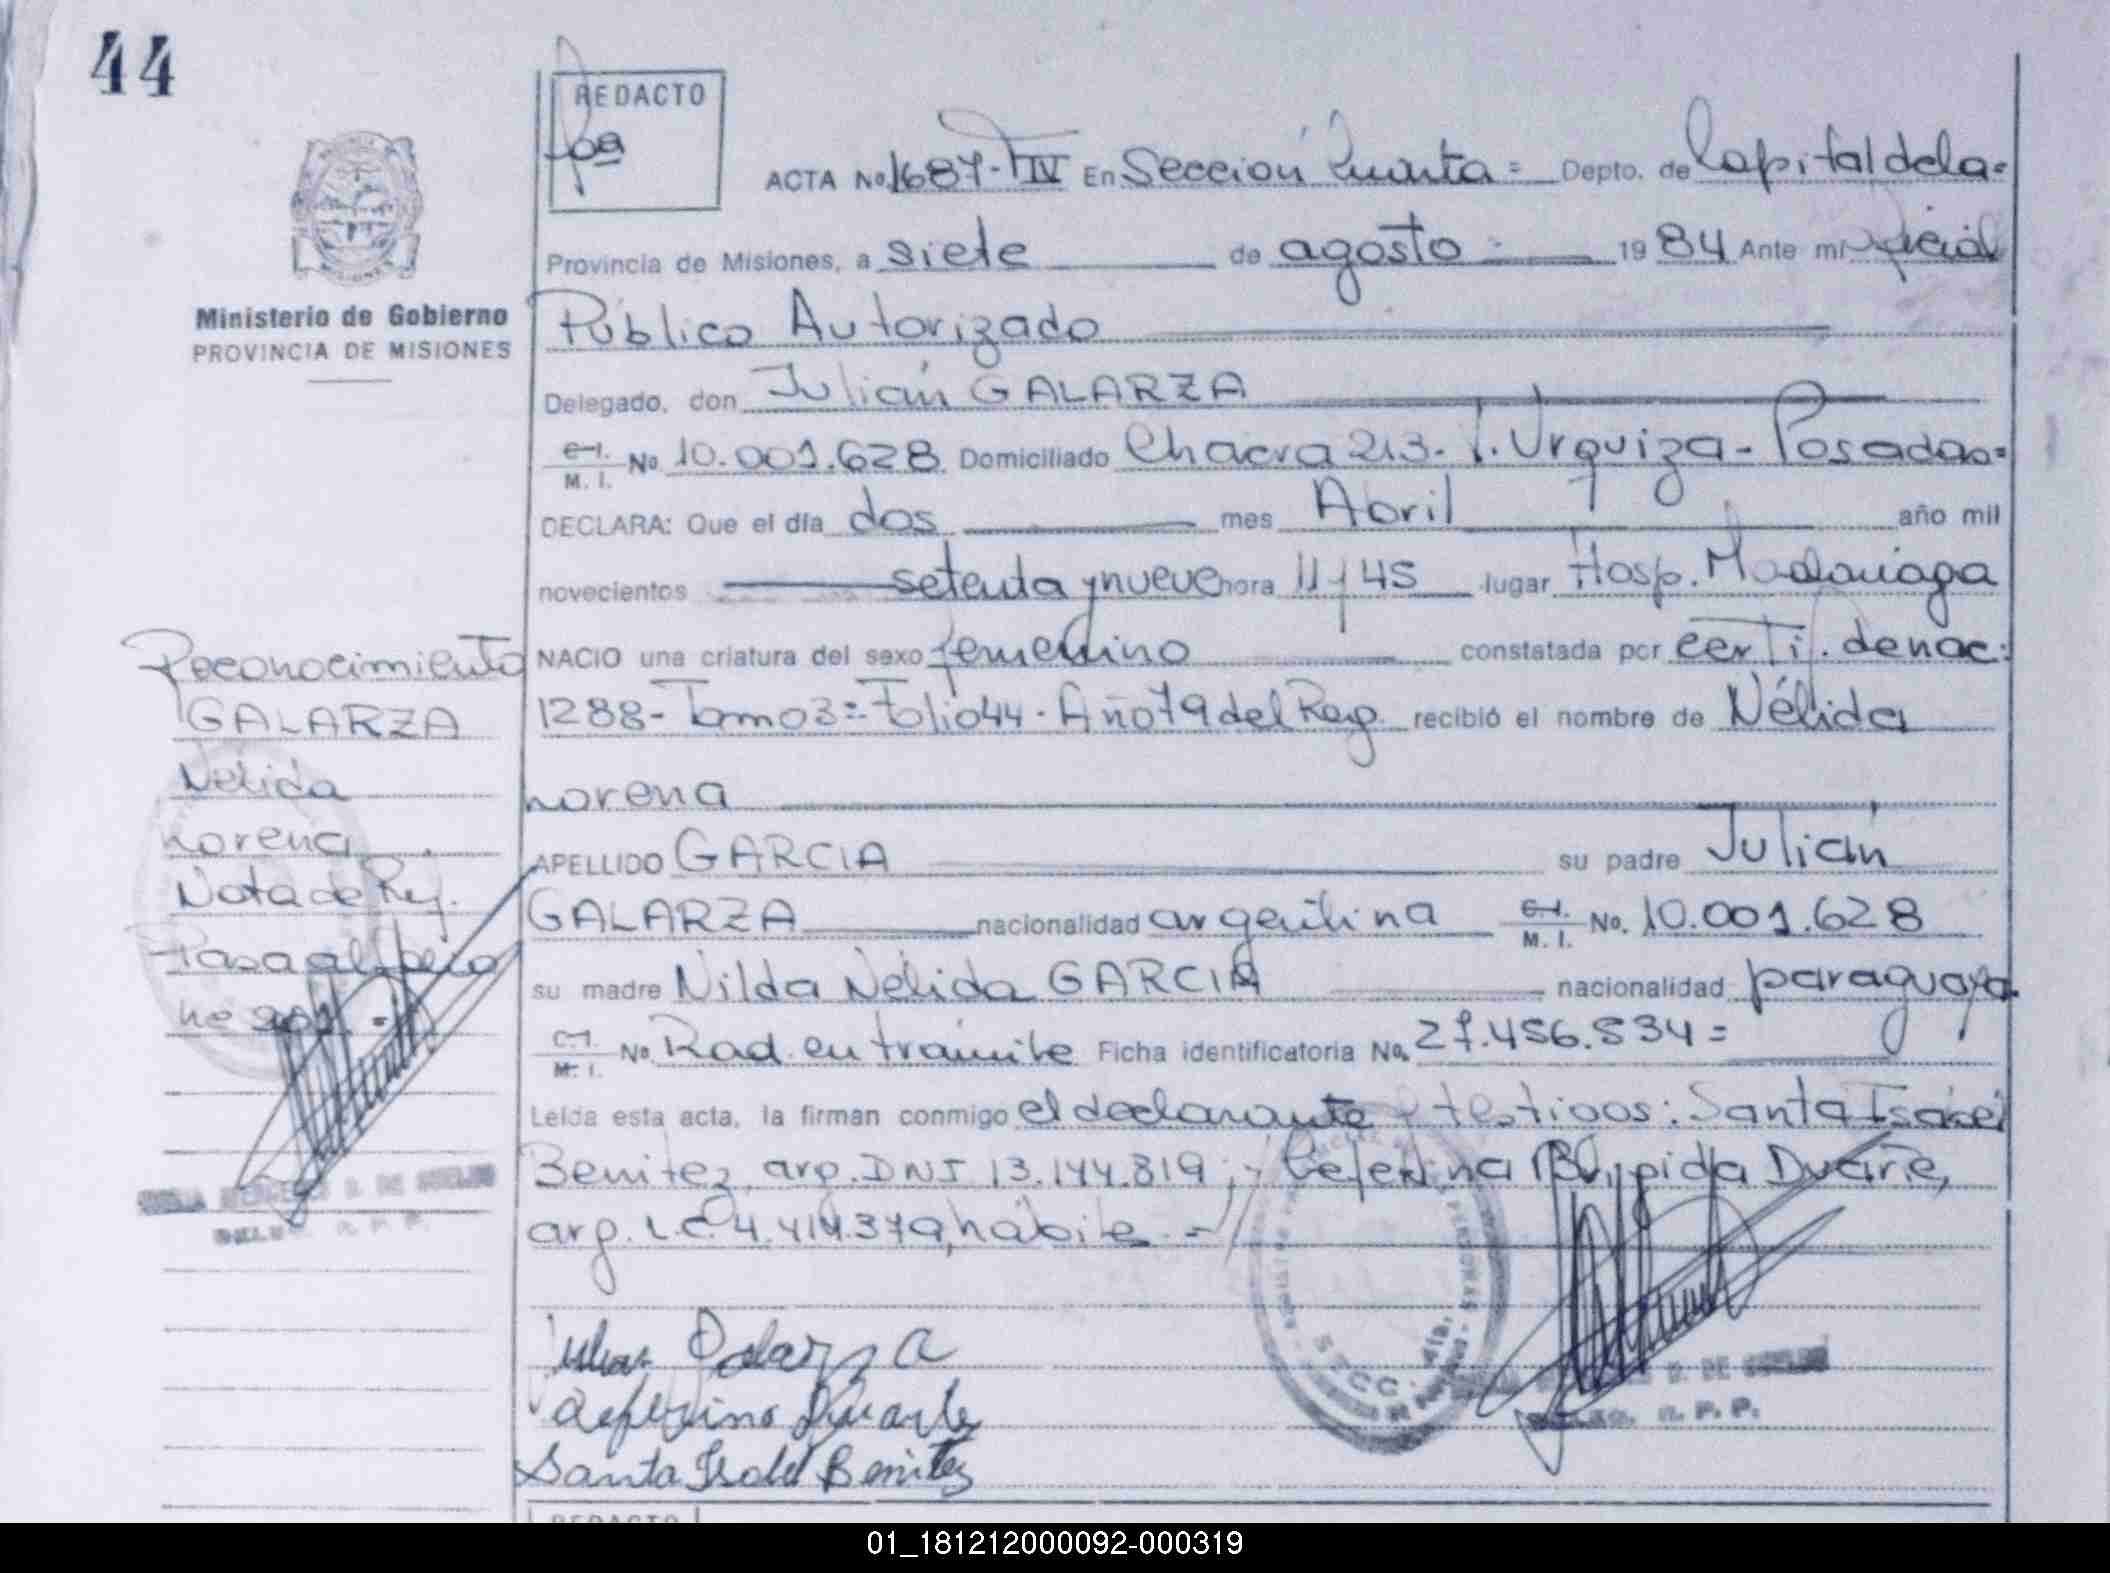 44
REDACTO
ACTA No. 1687-TIV En Sección Cuarta = Depto. de Capital de la =
Provincia de Misiones, a siete de agosto 1984 Ante mi Oficial
Ministerio de Gobierno
PROVINCIA DE MISIONES
Público Autorizado
Delegado, don Julián GALARZA
C.I. M. I. No 10.001.628 Domiciliado Chacra 213. J. Urquiza - Posadas =
DECLARA: Que el día dos mes Abril año mil
novecientos setenta y nueve hora 11 y 45 lugar Hosp. Madariaga
NACIO una criatura del sexo femenino constatada por certif. de nac.
1288 - Tomo 3 = Folio 44 - Año 79 del Reg. recibió el nombre de Nélida
Lorena
APELLIDO GARCIA su padre Julián
GALARZA nacionalidad argentina C.I. M. I. No. 10.001.628
su madre Nilda Nélida GARCIA nacionalidad paraguaya
C.I. M. I. No. Rad. en trámite Ficha identificatoria No. 27.456.534 =
Leída esta acta, la firman conmigo el declarante y testigos: Santa Isabel
Benitez, arg. DNI 13.144.819; y Ceferina Elpidia Duarte,
arg. L.C. 4.414.379, hábiles. =
Reconocimiento
GALARZA
Nélida
Lorena
Nota de Ref.
Pasa al
Julian Galarza
Ceferina Duarte
Santa Isabel Benitez
SECC. 4ta.
DE
R. P. P.
REDACTO
01_181212000092-000319